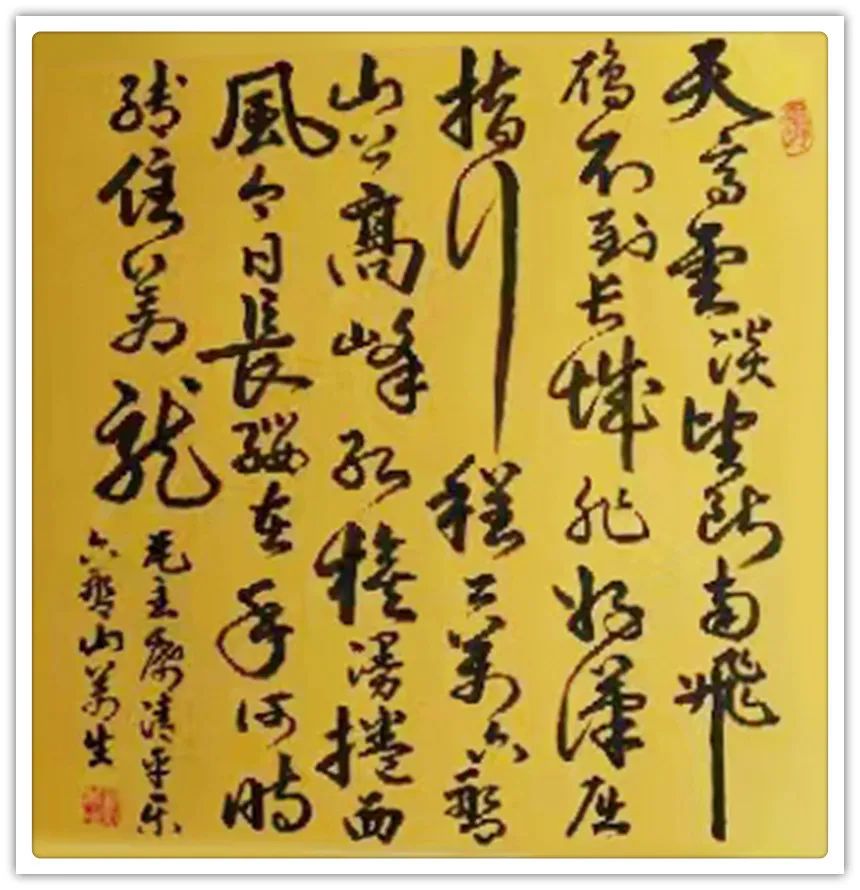 天高雲淡望斷南飛
鴈不到长城非好漢屈
指行程二萬六盤
山上高峰红旗漫捲西
風今日長纓在手何時
缚住蒼龍
毛主席清平乐
六盤山